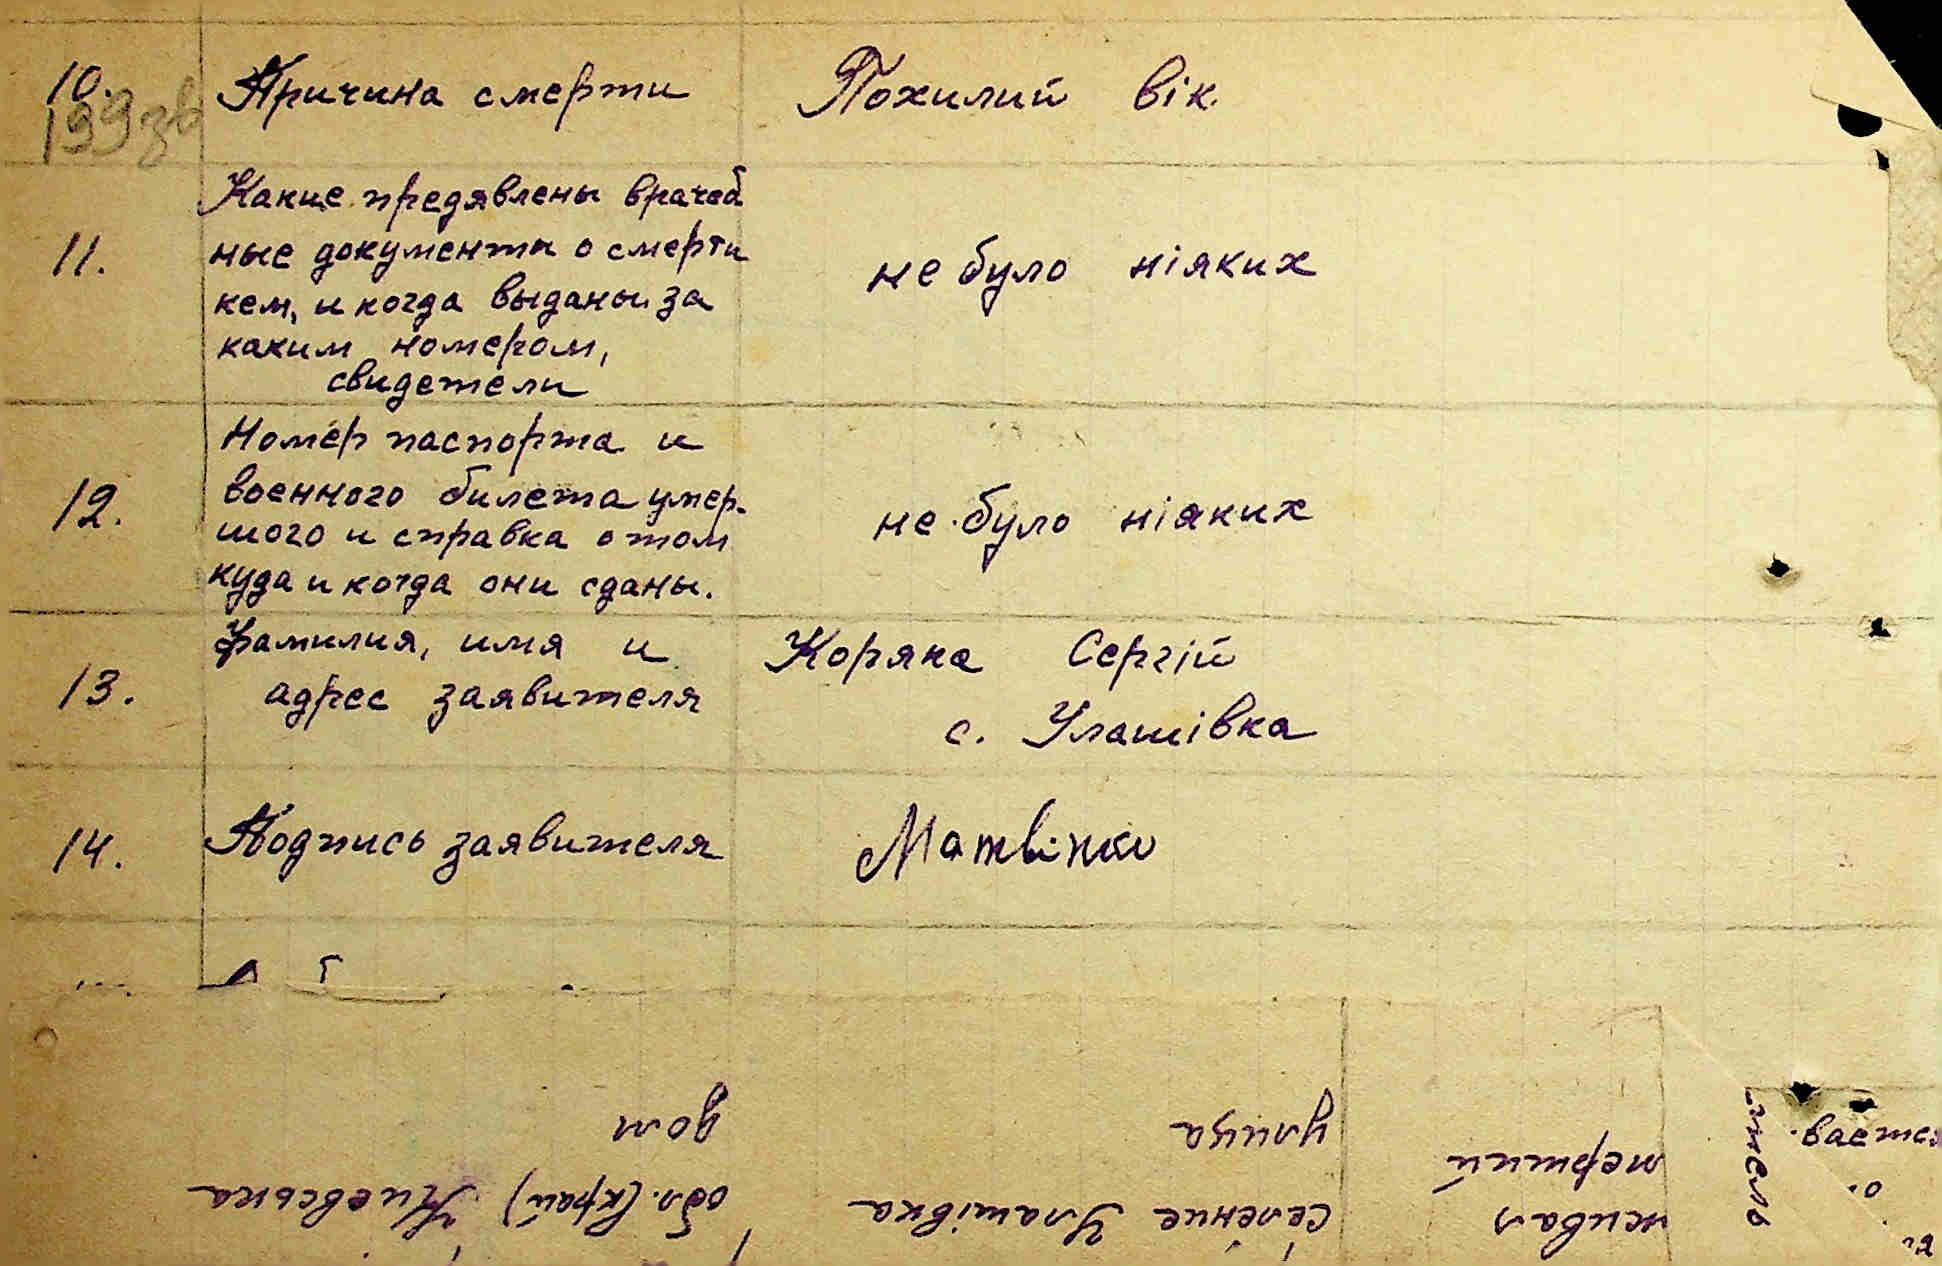 10. Причина смерти Похилий вік.
199 зв
Какие предявлены врачеб
11. ные документы о смерти не було ніяких
кем, и когда выданы за
каким номером,
свидетели
Номер паспорта и
12. военного билета умер- не було ніяких
шого и справка о том
куда и когда они сданы.
13. Фамилия, имя и Коряка Сергій
адрес заявителя с. Улашівка
14. Подпись заявителя Матвієнко
дом
улица
обл. (край) Київська
селение Улашівка
мерший
живал
вается